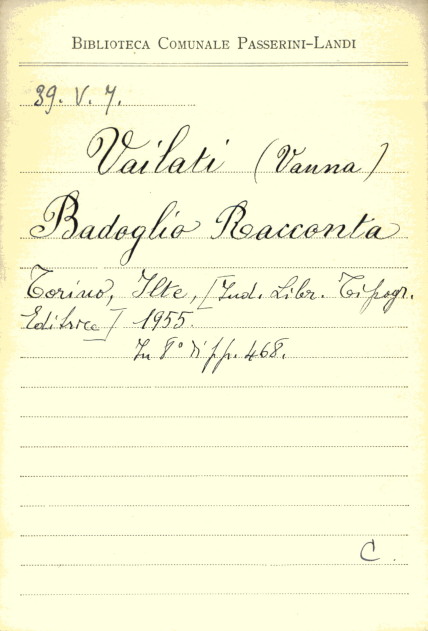 BIBLIOTECA COMUNALE PASSERINI-LANDI
39. V. 7.
Vailati (Vanna)
Badoglio Racconta
Torino, Ilte, [Ind. Libr. Tipogr.
Editrice] 1955.
In 8° di pp. 468.
C.